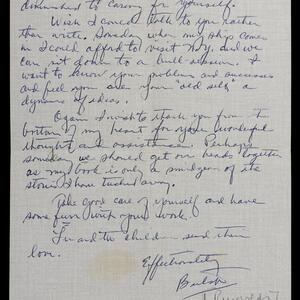 diminished to caring for yourself.
Wish I could talk to you rather
than write. Someday when my ship comes
in I could afford to visit N.Y. and we
can sit down to a bull-session. I
want to know your problems and successes
and feel you are your "old self" a
dynamo of ideas.
Again I wish to thank you from the
bottom of my heart for your wonderful
thought and assistance. Perhaps
someday we should get our heads together
as my book is only a smidgeon of the
stories I have tucked away.
Take good care of yourself and have
some fun with your work.
and the children send their
love.
Effectionately